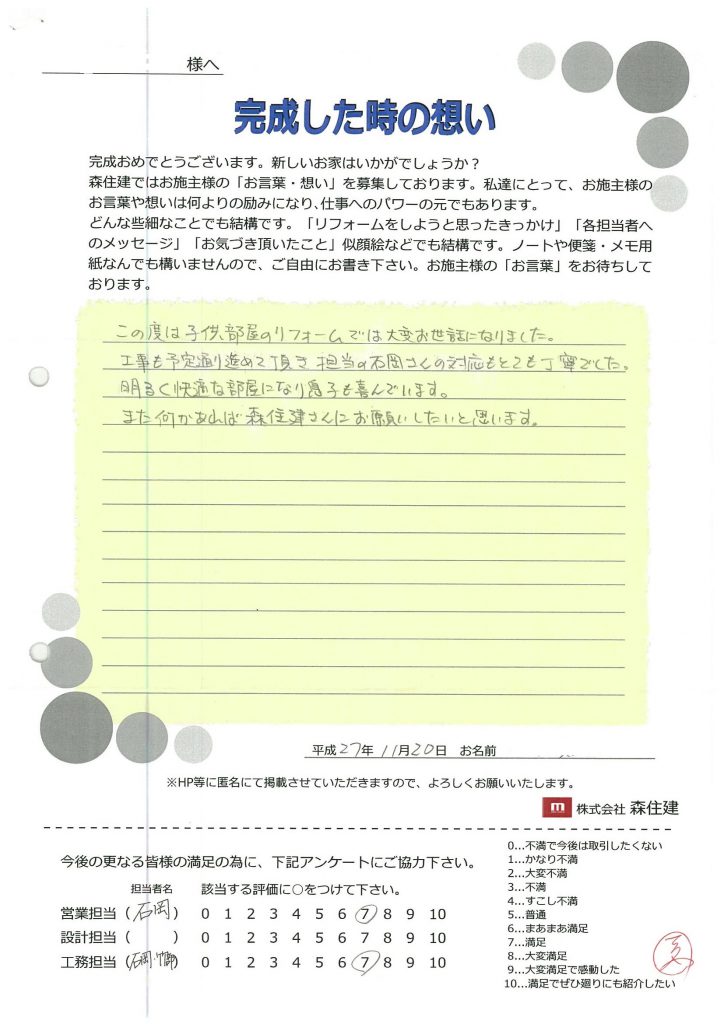 様へ
完成した時の想い
完成おめでとうございます。新しいお家はいかがでしょうか？
森住建ではお施主様の「お言葉・想い」を募集しております。私達にとって、お施主様の
お言葉や想いは何よりの励みになり、仕事へのパワーの元でもあります。
どんな些細なことでも結構です。「リフォームをしようと思ったきっかけ」「各担当者へ
のメッセージ」「お気づき頂いたこと」似顔絵などでも結構です。ノートや便箋・メモ用
紙なんでも構いませんので、ご自由にお書き下さい。お施主様の「お言葉」をお待ちして
おります。
この度は子供部屋のリフォームでは大変お世話になりました。
工事も予定通り進めて頂き担当の石岡さんの対応もとても丁寧でした。
明るく快適な部屋になり息子も喜んでいます。
また何かあれば森住建さんにお願いしたいと思います。
平成27年 11月20日 お名前
※HP等に匿名にて掲載させていただきますので、よろしくお願いいたします。
m 株式会社 森住建
今後の更なる皆様の満足の為に、下記アンケートにご協力下さい。
担当者名 該当する評価に○をつけて下さい。
営業担当（石岡） 0 1 2 3 4 5 6 7 8 9 10
設計担当（ ） 0 1 2 3 4 5 6 7 8 9 10
工務担当（石岡 ） 0 1 2 3 4 5 6 7 8 9 10
0…不満で今後は取引したくない
1…かなり不満
2…大変不満
3…不満
4…すこし不満
5…普通
6…まあまあ満足
7…満足
8…大変満足
9…大変満足で感動した
10…満足でぜひ廻りにも紹介したい